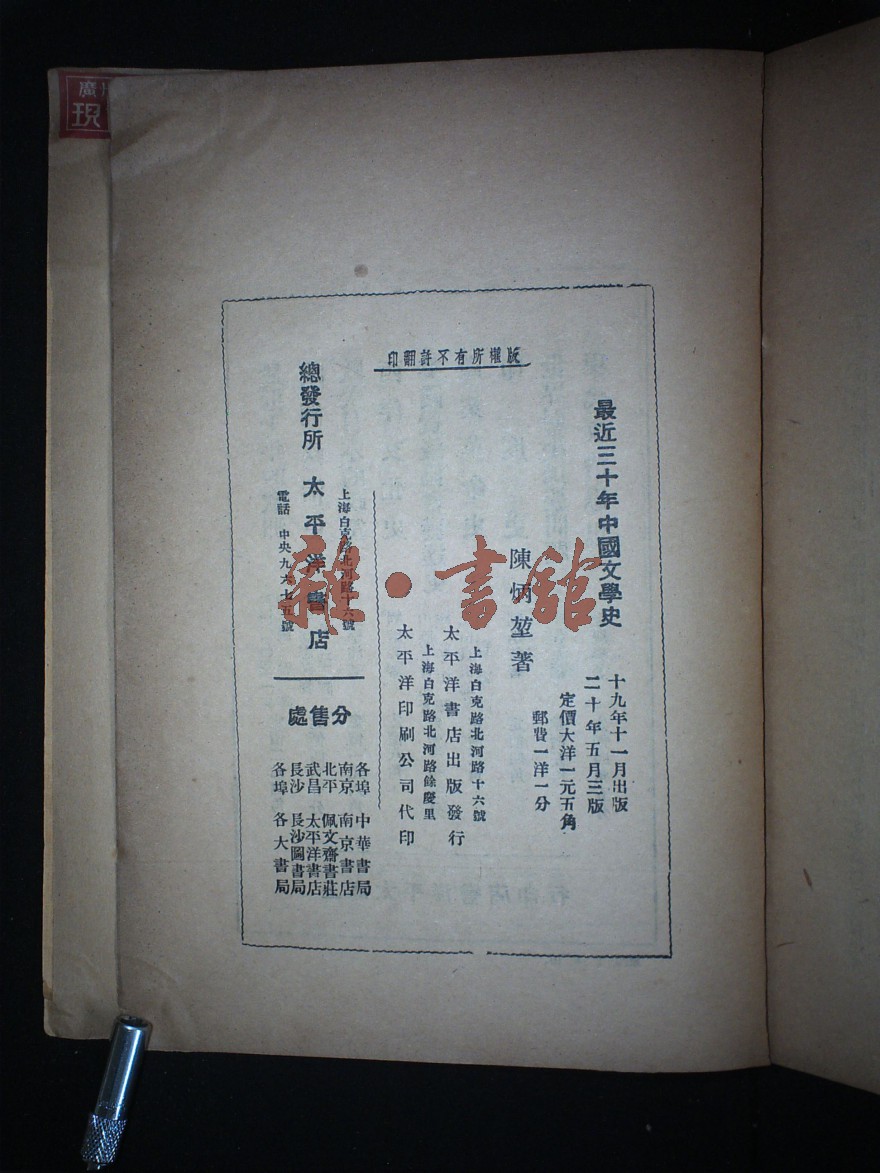 版權所有不許翻印
最近三十年中國文學史
十九年十一月出版
二十年五月三版
定價大洋一元五角
郵費一洋一分
陳炳堃著
上海白克路北河路十六號
太平洋書店出版發行
上海白克路北河路餘慶里
太平洋印刷公司代印
上海白克路北河路十六號
總發行所 太平洋書店
電話 中央九六七五號
分售處
各埠 中華書局
南京 南京書店
北平 佩文齋書莊
武昌 太平洋書店
長沙 長沙圖書局
各埠 各大書局
雜·書館
廣
現